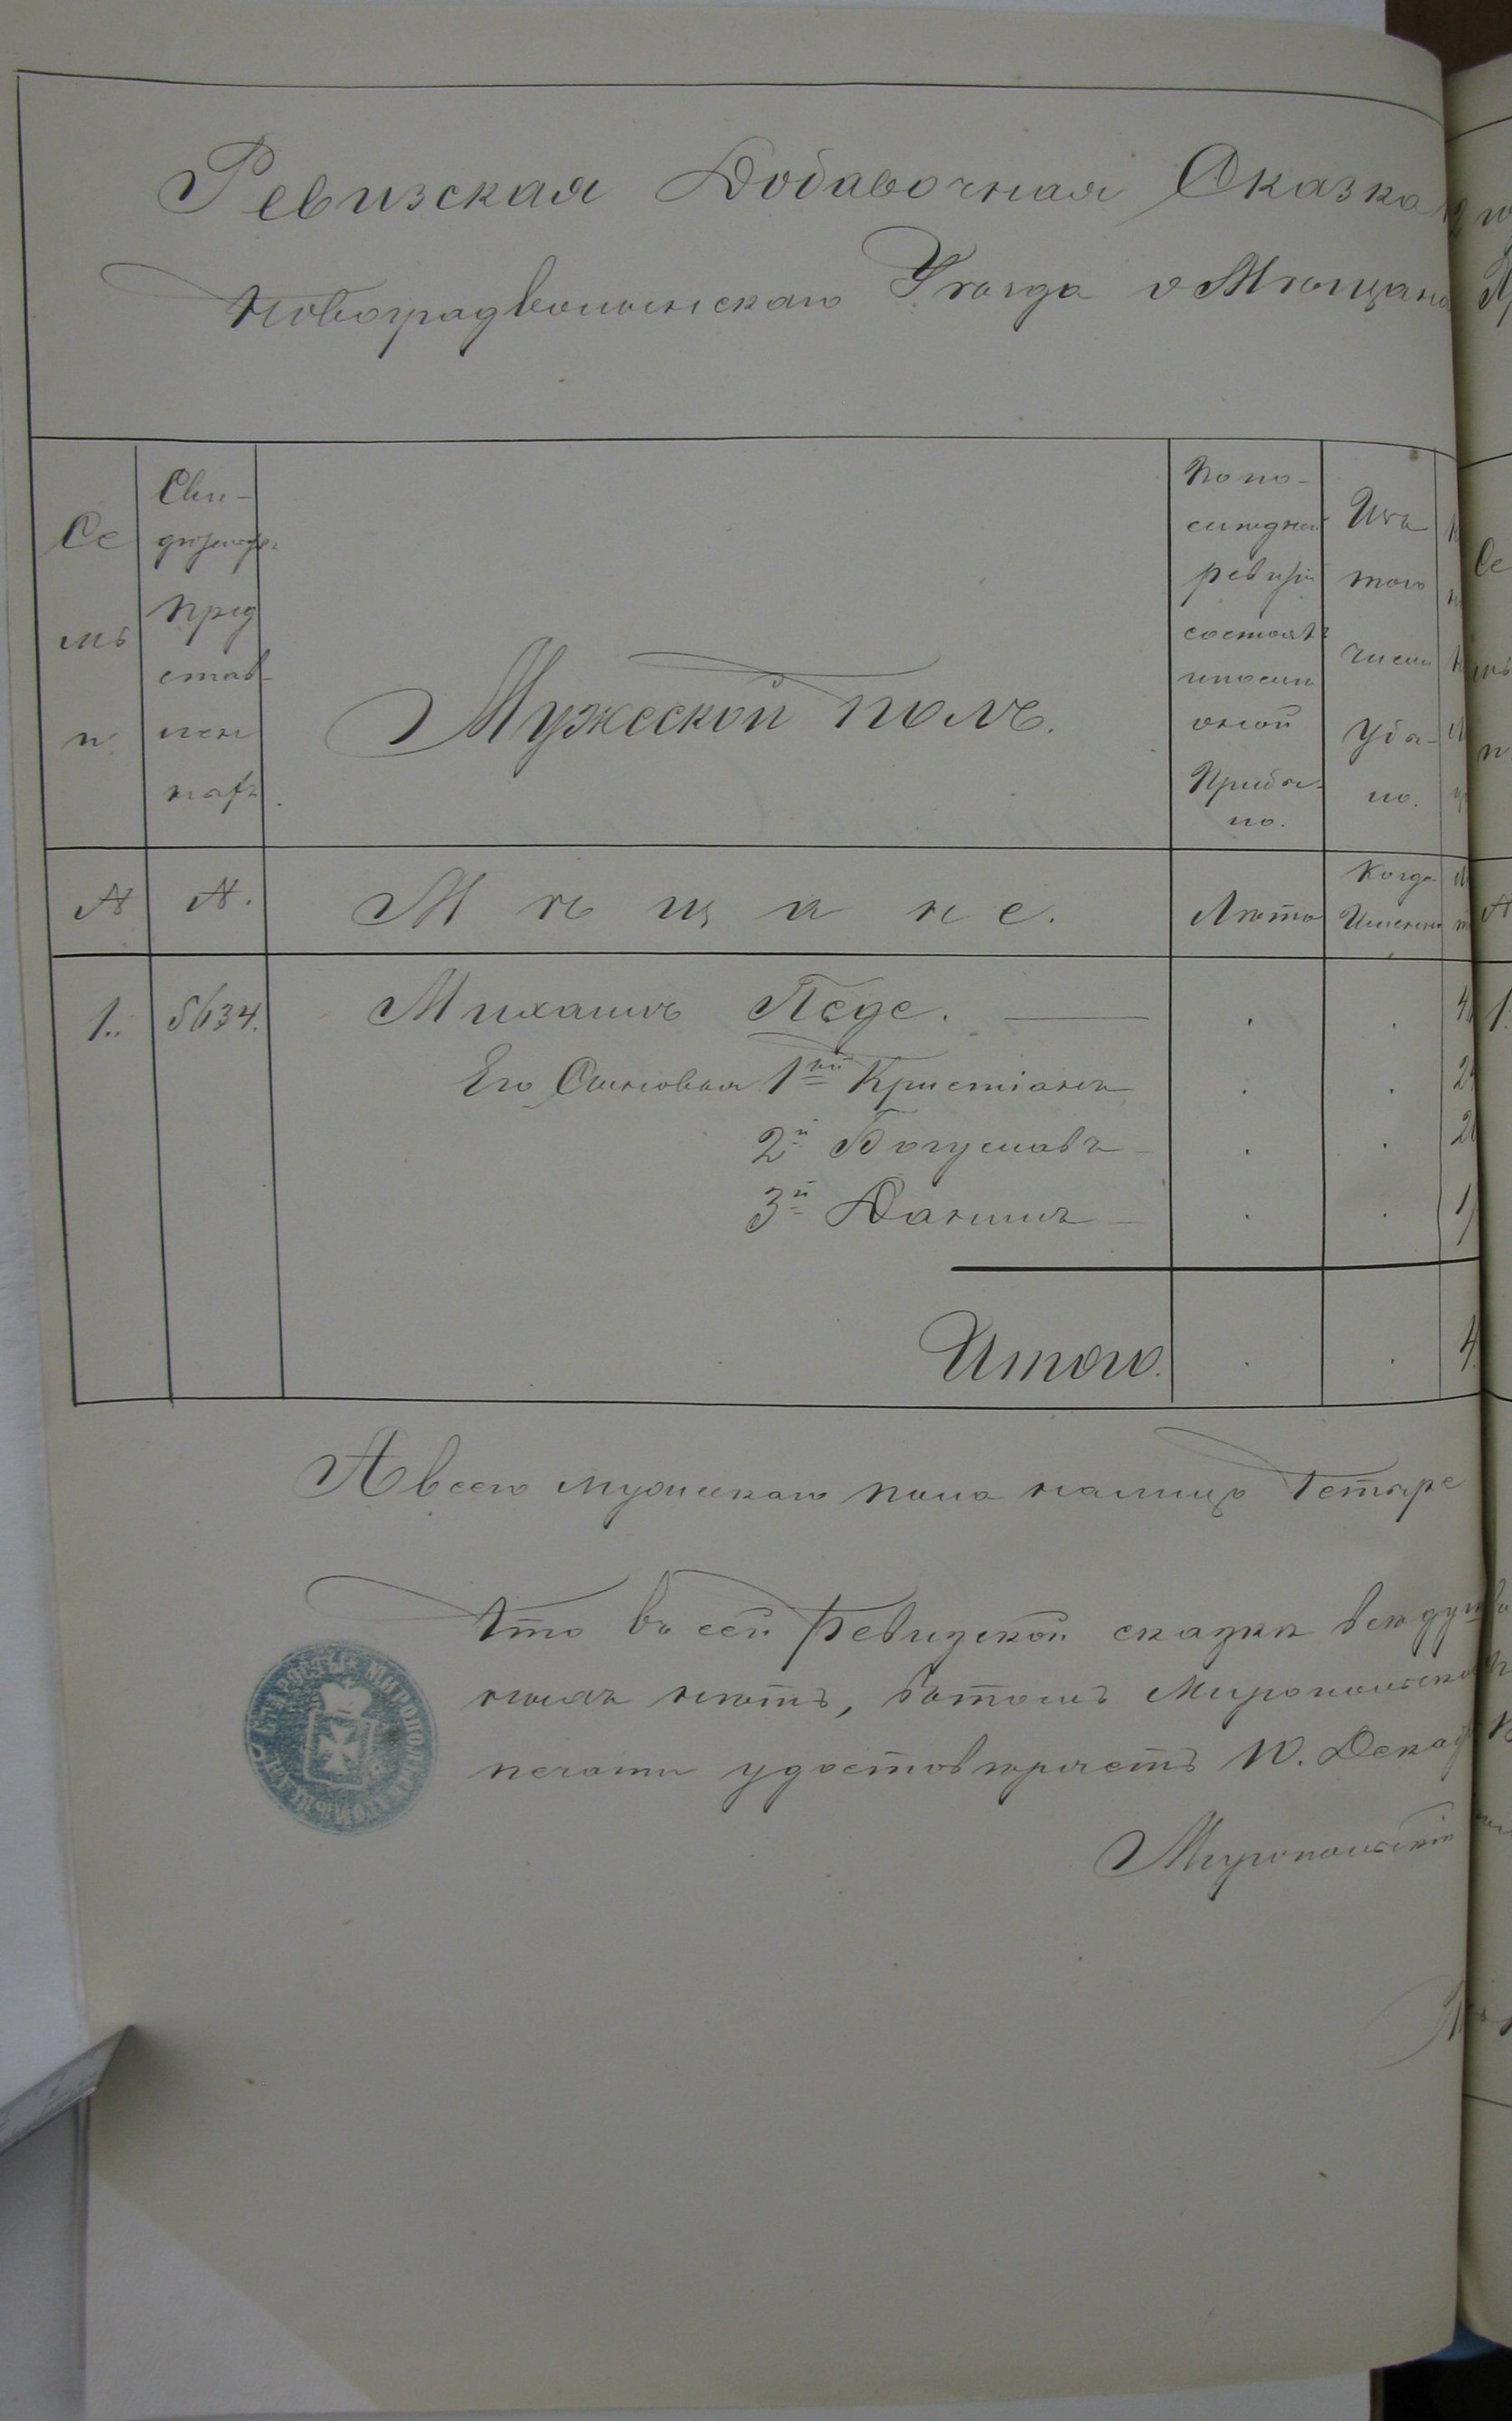 Ревизская Добавочная Сказка
Новоградволынскаго Уѣзда о Мѣщана
Се
мь
и
Сви-
дѣтельс
пред
став-
лен
наго
Мужеской полъ.
По по-
слѣдней
ревизіи
состоялъ
и после
оной
Прибы-
ло.
Изъ
того
числа
Убы-
ло.
№
№.
Мѣщане.
Лѣта
Когда
Именно
1..
5634.
Михаилъ Педе.
Его Сыновья 1ый Кристіанъ
2й Богуславъ
3й Данилъ
Итого.
4
А всего мужескаго пола налицо Четыре
Что въ сей Ревизской сказки всѣ душ
ныхъ нѣтъ, въ томъ Миропольско
печати удостовѣряетъ 10. Декаб
Миропольскій